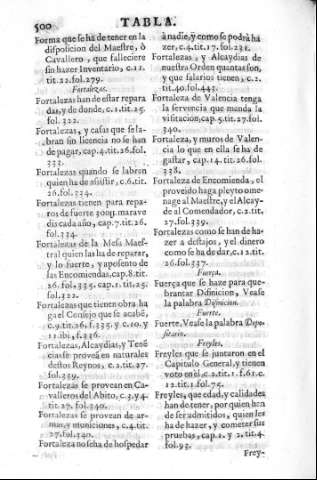 500
TABLA.
Forma que se ha de tener en la
disposicion del Maestre, ò
Cavallero, que falleciere
sin hazer Inventario, c.12.
tit.22.fol.279.
Fortalezas.
Fortalezas han de estar repara
das, y de donde, c.12.tit.25.
fol.322.
Fortalezas, y casas que se la-
bran sin licencia no se han
de pagar, cap.4.tit.26.fol.
333.
Fortalezas quando se labren
quien ha de assistir, c.6.tit.
26.fol.334.
Fortalezas tienen para repa-
ros de fuerte 300y. marave
dis cada año, cap.7.tit.26.
fol.334.
Fortalezas de la Mesa Maes-
tral quien las ha de reparar,
y lo fuerte, y aposento de
las Encomiendas, cap.8.tit.
26.fol.335. cap.1. tit.25.
fol.322.
Fortalezas que tienen obra ha
ga el Consejo que se acabe,
c.9.tit.26.f.335. y c.10. y
11.ibi, f.336.
Fortalezas, Alcaydias, y Tenē
cias se provea en naturales
destos Reynos, c.2.tit.27.
fol.339.
Fortalezas se provean en Ca-
valleros del Abito, c.3.y 4.
tit.27.fol.340.
Fortalezas se provean de ar-
mas, y municiones, c.4.tit.
27.fol.340.
Fortaleza no se ha de hospedar
à nadie, y como se podrà ha
zer, c.4.tit.17.fol.231.
Fortalezas, y Alcaydias de
nuestra Orden quantas son,
y que salarios tienen, c.2.
tit.40.fol.443.
Fortaleza de Valencia tenga
la servencia que manda la
visitacion, cap.5.tit.27.fol.
340.
Fortaleza, y muros de Valen-
cia lo que en ella se ha de
gastar, cap.14. tit.26.fol.
338.
Fortaleza de Encomienda, el
proveido haga pleyto ome-
nage al Maestre, y el Alcay-
de al Comendador, c.2.tit.
27.fol.339.
Fortalezas como se han de ha-
zer a destajos, y el dinero
como se ha de dar, c.12.tit.
26.fol.337.
Fuerça.
Fuerça que se haze para que-
brantar Difinicion, Vease
la palabra Difinicion.
Fuerte.
Fuerte, Vease la palabra Depo-
sitario.
Freyles.
Freyles que se juntaron en el
Capitulo General, y tienen
voto en el, c.2.tit.1.f.61.c.
12.tit.1.fol.75.
Freyles, que edad, y calidades
han de tener, por quien han
de ser admitidos, quien les
ha de hazer, y cometer sus
pruebas, cap.1. y 2.tit.4.
fol.93.
Frey-